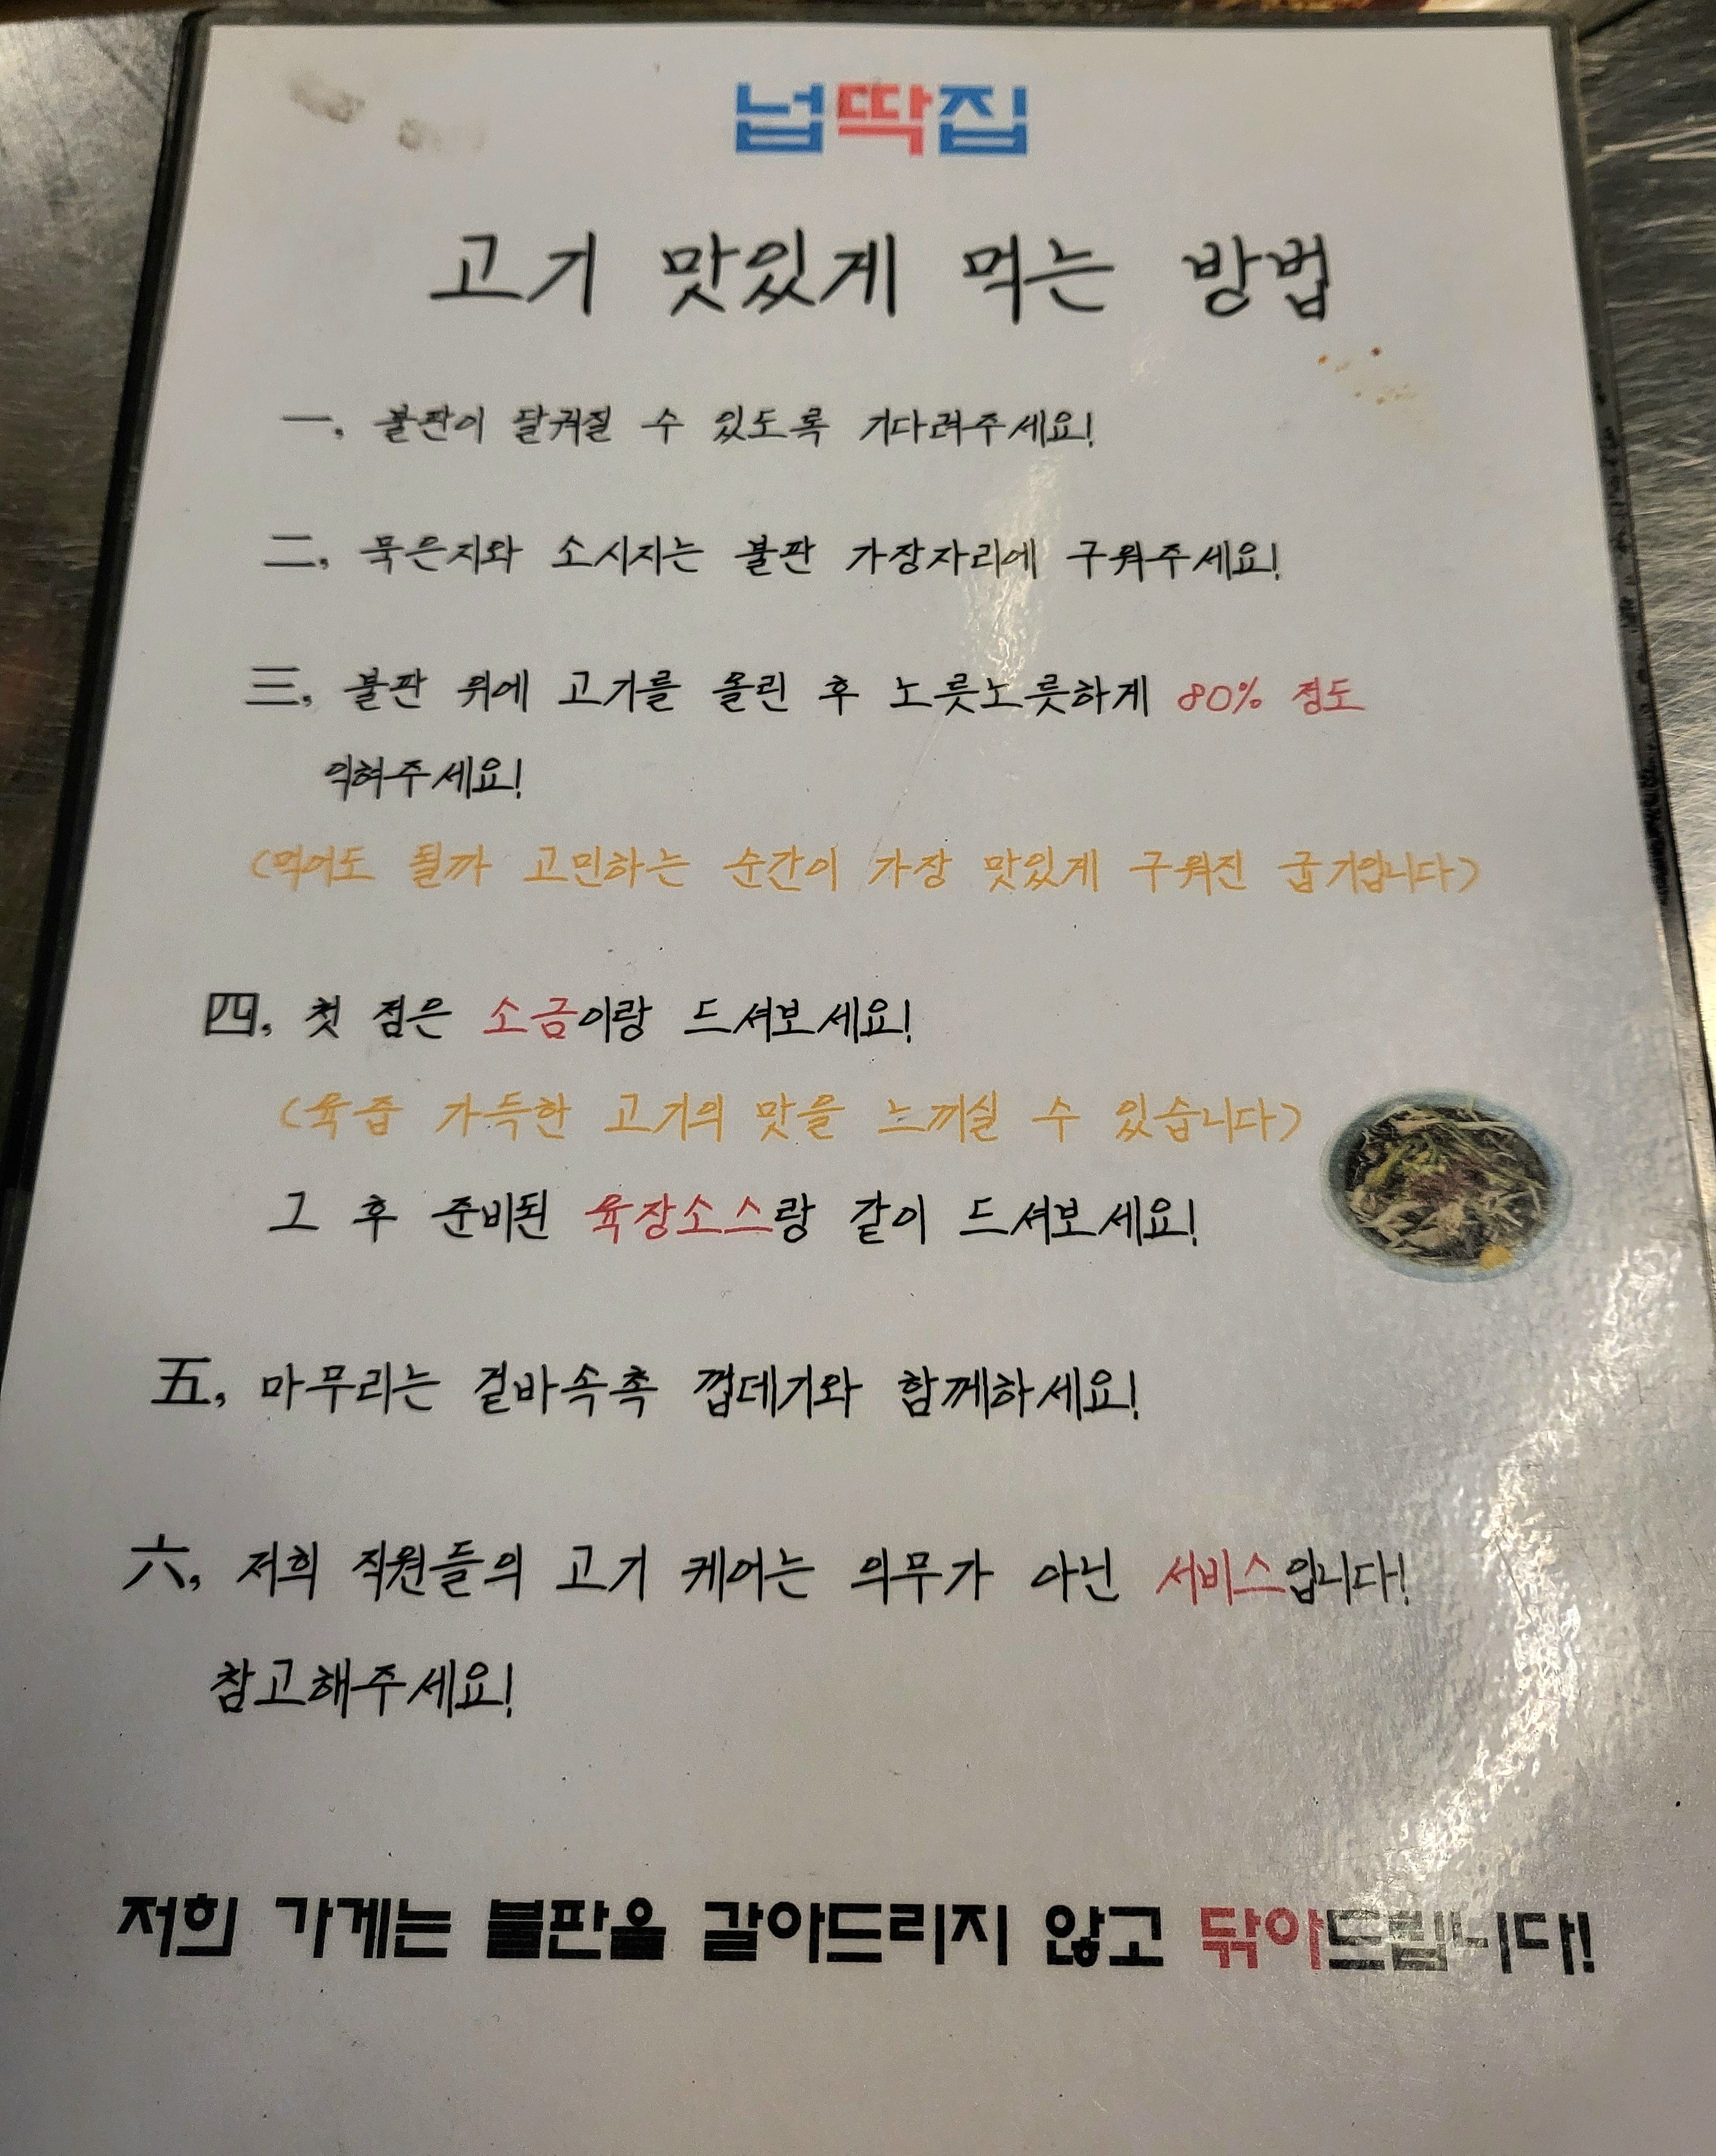 넙딱집
고기 맛있게 먹는 방법
一, 불판이 달궈질 수 있도록 기다려주세요!
二, 묵은지와 소시지는 불판 가장자리에 구워주세요!
三, 불판 위에 고기를 올린 후 노릇노릇하게 80% 정도
익혀주세요!
(먹어도 될까 고민하는 순간이 가장 맛있게 구워진 굽기입니다)
四, 첫 점은 소금이랑 드셔보세요!
(육즙 가득한 고기의 맛을 느끼실 수 있습니다)
그 후 준비된 육장소스랑 같이 드셔보세요!
五, 마무리는 겉바속촉 껍데기와 함께하세요!
六, 저희 직원들의 고기 케어는 의무가 아닌 서비스입니다!
참고해주세요!
저희 가게는 불판을 갈아드리지 않고 닦아드립니다!